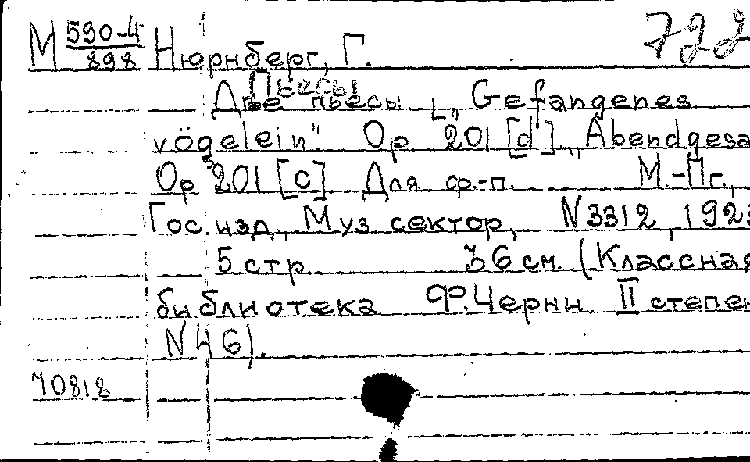 М 590-4/898 Нюрнберг, Г. 722
Пьесы
Две пьесы [„Gefangenes
vögelein" Op 201 [d] „Abendgesa
Op 201 [c] Для ф.-п. М.-Пг.,
Гос. изд. Муз сектор, N 3312, 192
5 стр. 36 см. (Классная
библиотека Ф. Черни. II степен
N 46).
70818